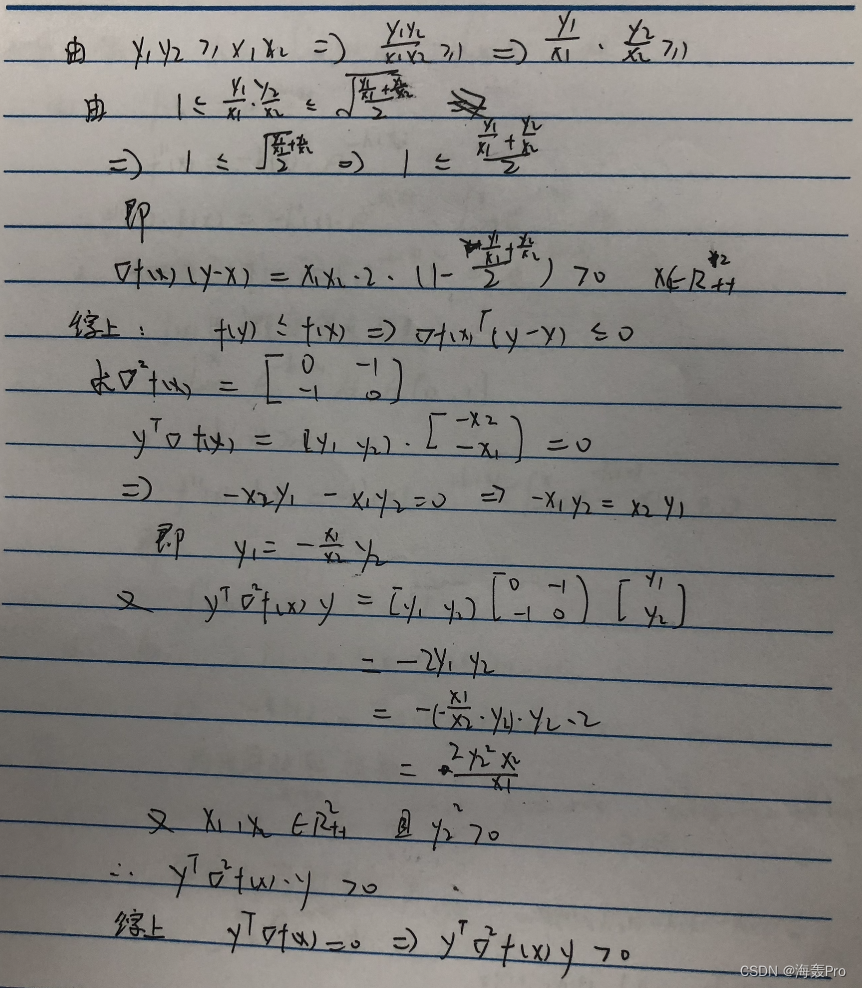 由 y₁y₂ ≥ x₁x₂ => y₁y₂/x₁x₂ ≥ 1 => y₁/x₁ · y₂/x₂ ≥ 1
由 1 ≤ y₁/x₁ · y₂/x₂ ≤ √((y₁/x₁ + y₂/x₂)/2)
=> 1 ≤ √((y₁/x₁ + y₂/x₂)/2) => 1 ≤ (y₁/x₁ + y₂/x₂)/2
即
∇f(x)(y-x) = x₁x₂·2·(1 - (y₁/x₁ + y₂/x₂)/2) > 0 x∈R²₊₊
综上: f(y) ≤ f(x) => ∇f(x)ᵀ(y-x) ≤ 0
求∇²f(x) = [0 -1; -1 0]
yᵀ∇f(x) = [y₁ y₂]·[-x₂; -x₁] = 0
=> -x₂y₁ - x₁y₂ = 0 => -x₁y₂ = x₂y₁
即 y₁ = -x₁/x₂ y₂
又 yᵀ∇²f(x)y = [y₁ y₂][0 -1; -1 0][y₁; y₂]
= -2y₁y₂
= -(-x₁/x₂·y₂)·y₂·2
= 2y₂²x₂/x₁
又 x₁,x₂ ∈R²₊₊ 且 y₂² > 0
∴ yᵀ∇²f(x)·y > 0
综上 yᵀ∇f(x) = 0 => yᵀ∇²f(x)y > 0
CSDN @海轰Pro